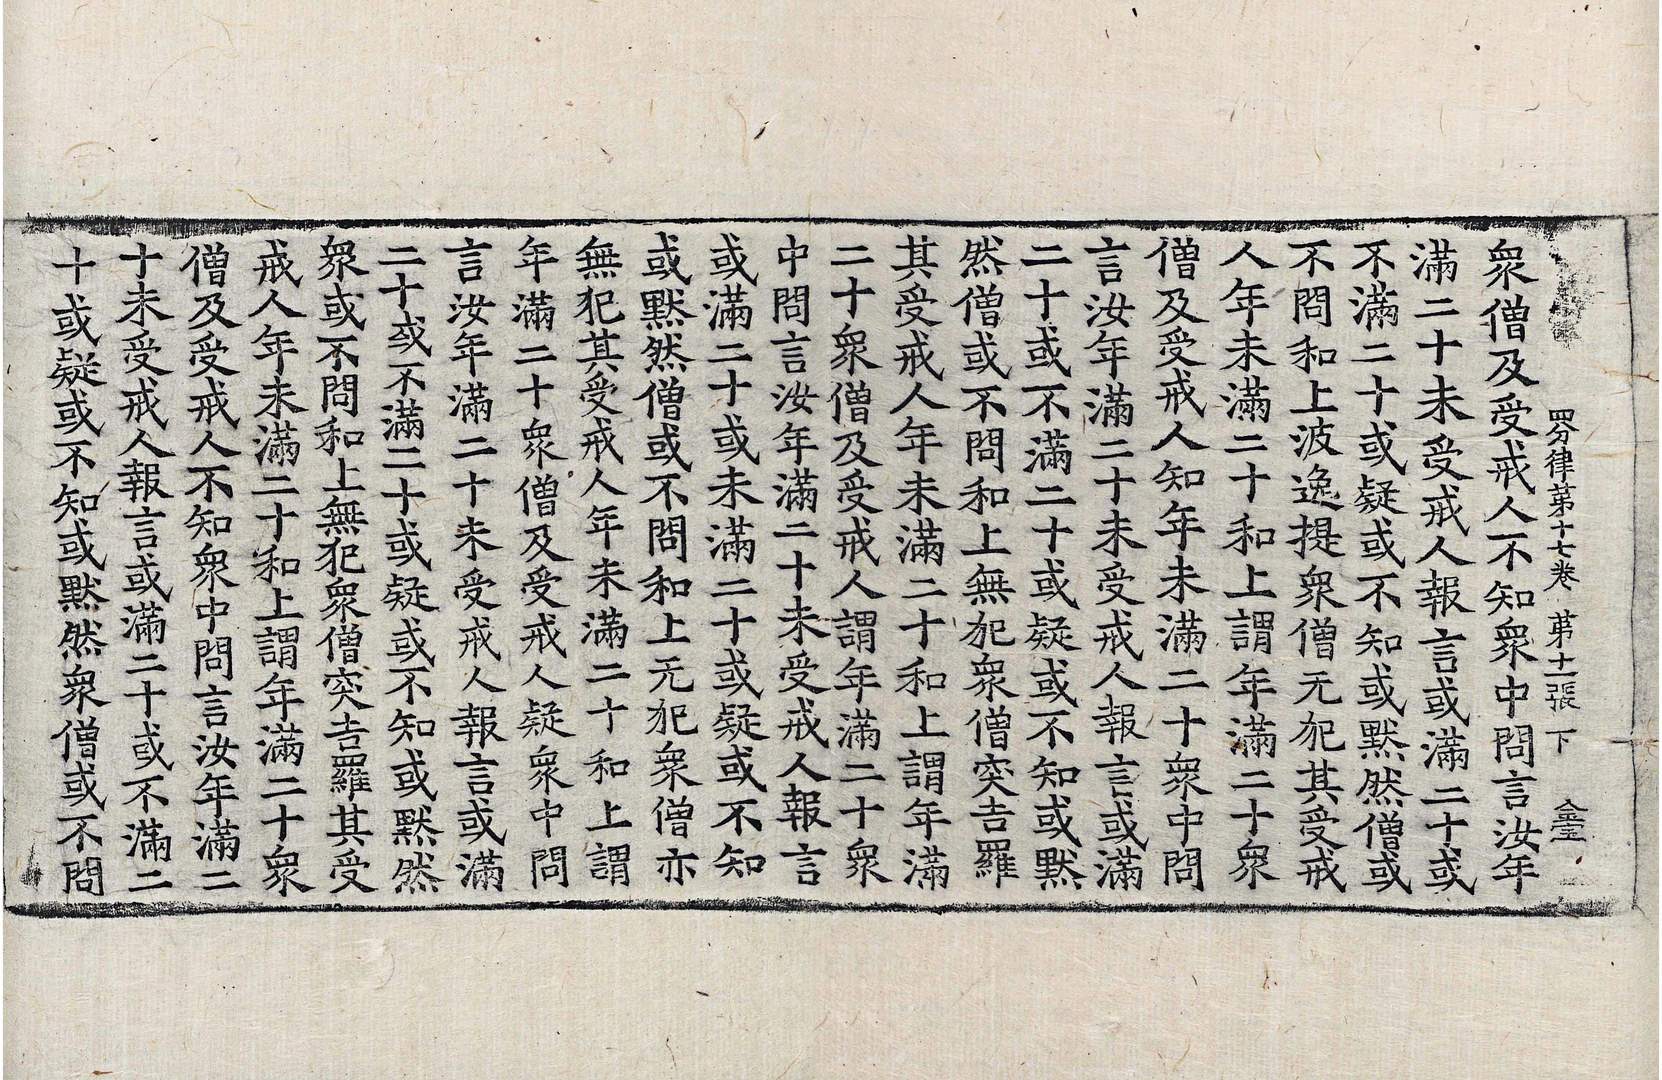 四分律第十七卷　第十一張　下
衆僧及受戒人不知衆中問言汝年
滿二十未受戒人報言或滿二十或
不滿二十或疑或不知或默然僧或
不問和上波逸提衆僧无犯其受戒
人年未滿二十和上謂年滿二十衆
僧及受戒人知年未滿二十衆中問
言汝年滿二十未受戒人報言或滿
二十或不滿二十或疑或不知或默
然僧或不問和上無犯衆僧突吉羅
其受戒人年未滿二十和上謂年滿
二十衆僧及受戒人謂年滿二十衆
中問言汝年滿二十未受戒人報言
或滿二十或未滿二十或疑或不知
或默然僧或不問和上无犯衆僧亦
無犯其受戒人年未滿二十和上謂
年滿二十衆僧及受戒人疑衆中問
言汝年滿二十未受戒人報言或滿
二十或不滿二十或疑或不知或默然
衆或不問和上無犯衆僧突吉羅其受
戒人年未滿二十和上謂年滿二十衆
僧及受戒人不知衆中問言汝年滿二
十未受戒人報言或滿二十或不滿二
十或疑或不知或默然衆僧或不問